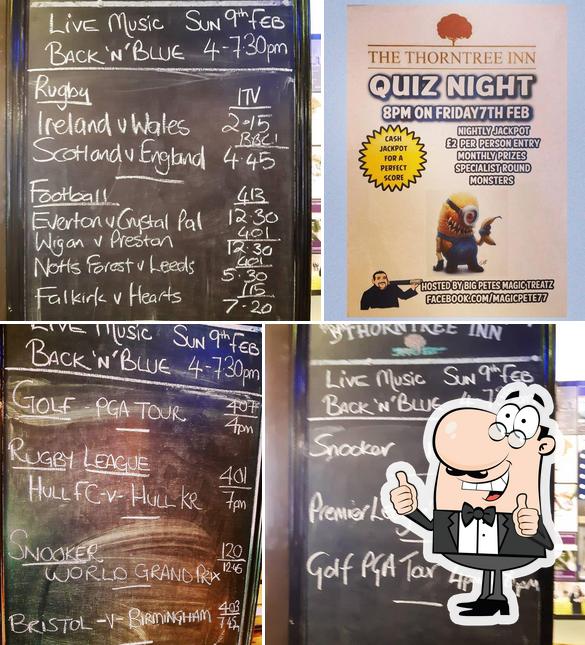 LIVE MUSIC SUN 9th FEB
BACK 'N' BLUE 4-7:30pm
Rugby ITV
Ireland v Wales 2-15
BBC1
Scotland v England 4.45
Football 413
Everton v Crystal Pal 12.30
401
Wigan v Preston 12.30
401
Notts Forest v Leeds 5.30
115
Falkirk v Hearts 7-20
THE THORNTREE INN
QUIZ NIGHT
8PM ON FRIDAY7TH FEB
CASH
JACKPOT
FOR A
PERFECT
SCORE
NIGHTLY JACKPOT
£2 PER PERSON ENTRY
MONTHLY PRIZES
SPECIALIST ROUND
MONSTERS
HOSTED BY BIG PETES MAGIC TREATZ
FACEBOOK.COM/MAGICPETE77
LIVE MUSIC SUN 9th FEB
BACK 'N' BLUE 4-7:30pm
GOLF - PGA TOUR 407
4pm
RUGBY LEAGUE
401
HULL FC -v- HULL KR 7pm
SNOOKER 120
WORLD GRAND PRIX 12:45
BRISTOL -v- BIRMINGHAM 403
7:45pm
THORNTREE INN
LIVE MUSIC SUN 9th FEB
BACK 'N' BLUE
Snooker
Premier
Golf PGA Tour